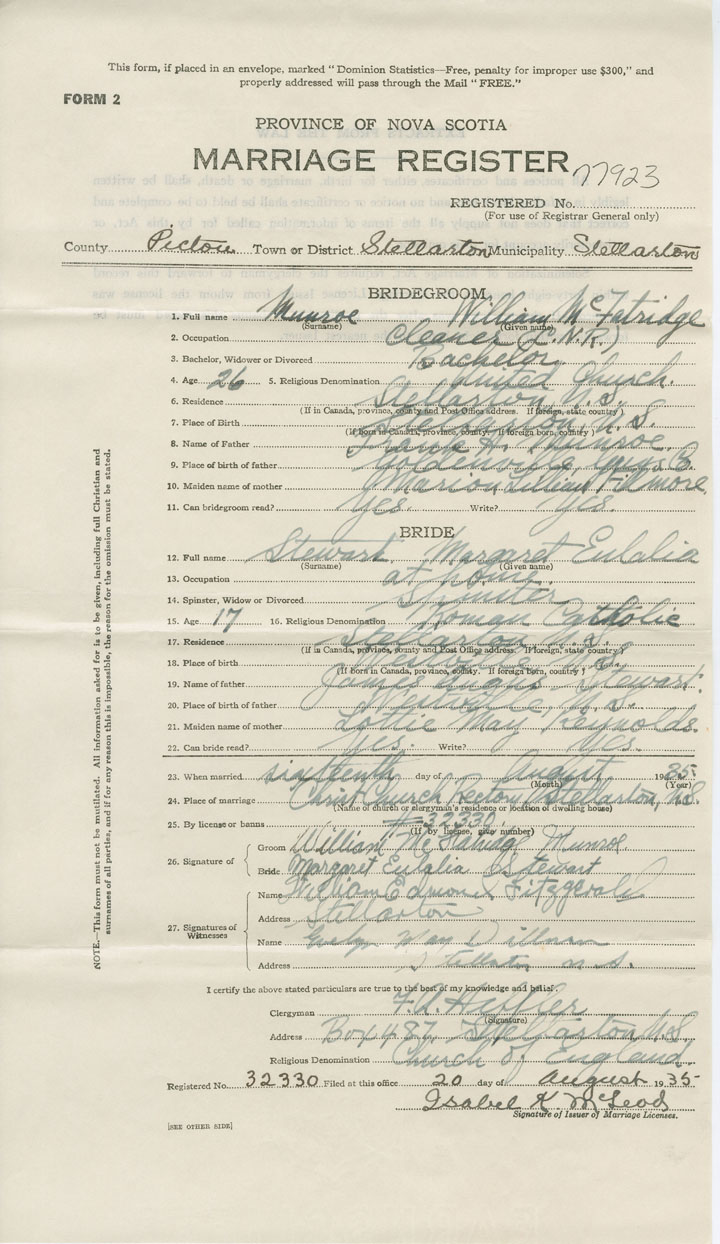 This form, if placed in an envelope, marked “Dominion Statistics—Free, penalty for improper use $300,” and
properly addressed will pass through the Mail “FREE.”
FORM 2
PROVINCE OF NOVA SCOTIA
MARRIAGE REGISTER
77923
REGISTERED No.
(For use of Registrar General only)
County Pictou Town or District Stellarton Municipality Stellarton
BRIDEGROOM
1. Full name Munroe William McFatridge
(Surname) (Given name)
2. Occupation Cleaner (C.N.R.)
3. Bachelor, Widower or Divorced Bachelor
4. Age 26 5. Religious Denomination United Church.
6. Residence Stellarton N.S.
(If in Canada, province, county and Post Office address. If foreign, state country)
7. Place of Birth Stellarton, N.S.
(If born in Canada, province, county. If foreign born, country)
8. Name of Father Frank H. Munroe.
9. Place of birth of father Goldenville
10. Maiden name of mother Marion Lillian Fillmore.
11. Can bridegroom read? Yes. Write? Yes.
BRIDE
12. Full name Stewart Margaret Eulalia
(Surname) (Given name)
13. Occupation at home.
14. Spinster, Widow or Divorced Spinster
15. Age 17 16. Religious Denomination Roman Catholic
17. Residence Stellarton N.S.
(If in Canada, province, county and Post Office address. If foreign, state country)
18. Place of birth Westville N.S.
(If born in Canada, province, county. If foreign born, country)
19. Name of father James Angus Stewart.
20. Place of birth of father Westville N.S.
21. Maiden name of mother Lottie May Reynolds.
22. Can bride read? Yes. Write? Yes.
23. When married sixteenth day of August 1935
(Month) (Year)
24. Place of marriage Christ Church Rectory, Stellarton, N.S.
(Name of church or clergyman's residence or location of dwelling house)
25. By license or banns #32330
(If by license, give number)
26. Signature of
Groom William McFatridge Munroe
Bride Margaret Eulalia Stewart
27. Signatures of Witnesses
Name William Edmond Fitzgerald
Address Stellarton
Name Evelyn May Dillman
Address Stellarton N.S.
I certify the above stated particulars are true to the best of my knowledge and belief.
Clergyman
(Signature)
Address Box 487, Stellarton N.S.
Religious Denomination Church of England.
Registered No. 32330 Filed at this office 20 day of August 1935
Isabel K McLeod
Signature of Issuer of Marriage Licenses.
[SEE OTHER SIDE]
NOTE.—This form must not be mutilated. All information asked for is to be given, including full Christian and
surnames of all parties, and if for any reason this is impossible, the reason for the omission must be stated.